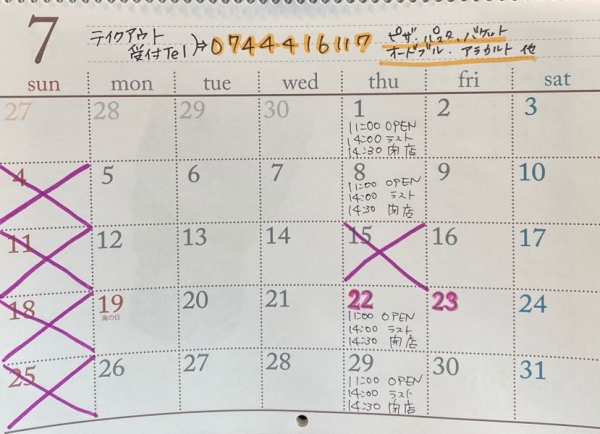 7
テイクアウト
受付Tel → 0744416117
ピザ・パスタ・バケット
オードブル・アラカルト 他
sun mon tue wed thu fri sat
27 28 29 30 1 2 3
11:00 OPEN
14:00 ラスト
14:30 閉店
4 5 6 7 8 9 10
11:00 OPEN
14:00 ラスト
14:30 閉店
11 12 13 14 15 16 17
18 19 20 21 22 23 24
海の日
11:00 OPEN
14:00 ラスト
14:30 閉店
25 26 27 28 29 30 31
11:00 OPEN
14:00 ラスト
14:30 閉店